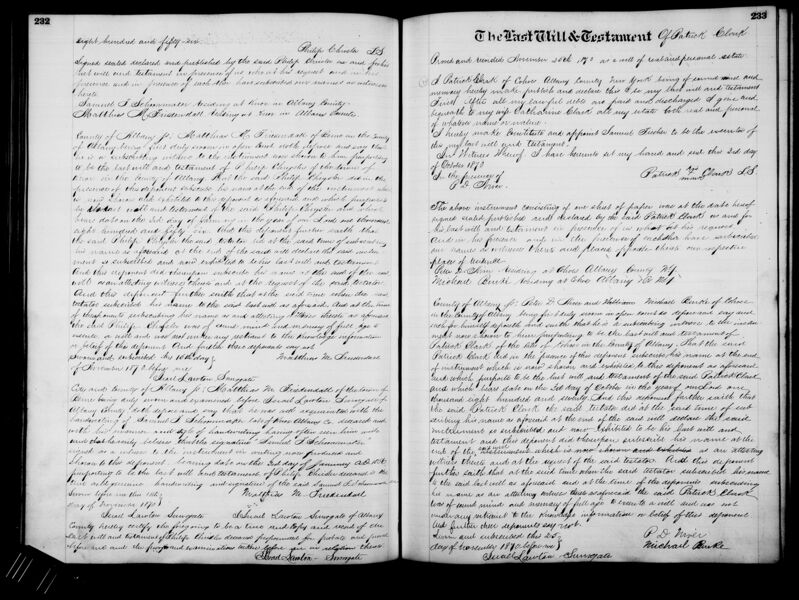 232
eight hundred and fifty six
Philip Christer L S
Signed sealed declared and published by the said Philip Christer as and for his
last will and testament in presence of us who at his request and in his
presence and in presence of each other have subscribed our names as witnesses
hereto
Samuel S. Schoonmaker residing at Knox in Albany County
Matthias M. Fredendall residing at Knox in Albany County
County of Albany ss: Matthias M. Fredendall of Berne in the County
of Albany being first duly sworn in open court doth depose and say that
he is a subscribing witness to the instrument now shown to him purporting
to be the last will and testament of Philip Christer of the town of
Knox in the County of Albany that the said Philip Christer did in the
presence of this deponent subscribe his name at the end of the instrument which
is now shown and exhibited to the deponent as aforesaid and which purports to
be the last will and testament of the said Philip Christer and which
bears date on the 3rd day of January in the year of our Lord one thousand
eight hundred and fifty six And this deponent further saith that
the said Philip Christer the said testator did at the said time of subscribing
his name as aforesaid at the end of the said will declare the said instru
ment so subscribed and now exhibited to be his last will and testament
And this deponent did thereupon subscribe his name at the end of the said
will as an attesting witness thereto and at the request of the said testator
And this deponent further saith that at the said time when the said
testator subscribed his name to the said last will as aforesaid and at the time
of the deponents subscribing his name as an attesting witness thereto as aforesaid
the said Philip Christer was of sound mind and memory of full age to
execute a will and was not under any restraint to the knowledge information
or belief of this deponent And further deponent says not
Sworn and subscribed this 10th day
of November 1870 before me
Matthias M. Fredendall
Israel Lawton Surrogate
City and County of Albany ss: Matthias M. Fredendall of the town of
Berne being duly sworn and examined before Israel Lawton Surrogate of
Albany County doth depose and say that he was well acquainted with the
handwriting of Samuel S. Schoonmaker late of Knox Albany Co deceased and
with his manner and style of handwriting having often seen him write
and that he verily believes that the signature "Samuel S. Schoonmaker"
signed as a witness to the instrument in writing now produced and
shown to this deponent bearing date on the 3rd day of January A.D. 1856
purporting to be the last will and testament of Philip Christer deceased is the
handwriting and signature of the said Samuel S. Schoonmaker
Sworn before me this 10th
day of November 1870
Matthias M. Fredendall
Israel Lawton Surrogate
I Israel Lawton Surrogate of Albany
County hereby certify the foregoing to be a true and copy and record of the
last will and testament of Philip Christer deceased
before me and the proofs and examinations taken before me in relation thereto
Israel Lawton Surrogate
233
The Last Will & Testament Of Patrick Clark
Proved and recorded November 25th 1870 as a will of real and personal estate
I Patrick Clark of Cohoes Albany County New York being of sound mind and
memory hereby make publish and declare this to be my last will and testament
First After all my lawful debts are paid and discharged I give and
bequeath to my wife Catharine Clark all my estate both real and personal
of whatever name or nature
I hereby make constitute and appoint Samuel Fischer to be the executor of
this my last will and testament.
In Witness Whereof I have hereunto set my hand and seal this 3rd day
of October 1870
In the presence of
P D Niver.
Patrick his mark Clark L S
The above instrument consisting of one sheet of paper was at the date hereof
signed sealed published and declared by the said Patrick Clark as and for
his last will and testament in presence of us who at his request
and in his presence and in the presence of each other have subscribed
our names as witnesses thereto and placed opposite thereto our respective
places of residence
Peter D. Niver residing at Cohoes Albany County NY
Michael Burke residing at Cohoes Albany Co NY
County of Albany ss: Peter D Niver and William Michael Burke of Cohoes
in the County of Albany being first duly sworn in open court do depose and say and
each for himself deposeth and saith that he is a subscribing witness to the instru
ment now shown to him purporting to be the last will and testament of
Patrick Clark of the city of Cohoes in the County of Albany That the said
Patrick Clark did in the presence of this deponent subscribe his name at the end
of instrument which is now shown and exhibited to this deponent as aforesaid
and which purports to be the last will and testament of the said Patrick Clark
and which bears date on the 3rd day of October in the year of our Lord one
thousand eight hundred and seventy And this deponent further saith that
the said Patrick Clark the said testator did at the said time of sub
scribing his name as aforesaid at the end of the said will declare the said
instrument so subscribed and now exhibited to be his last will and
testament and this deponent did thereupon subscribe his name at the
end of the instrument which is now shown and exhibited as an attesting
witness thereto and at the request of the said testator And this deponent
further saith that at the said time when the said testator subscribed his name
to the said last will as aforesaid and at the time of the deponents subscribing
his name as an attesting witness thereto as aforesaid the said Patrick Clark
was of sound mind and memory of full age to execute a will and was not
under any restraint to the knowledge information or belief of this deponent
And further these deponents say not
Sworn and subscribed this 25
day of November 1870 before me
P. D. Niver
Michael Burke
Israel Lawton Surrogate